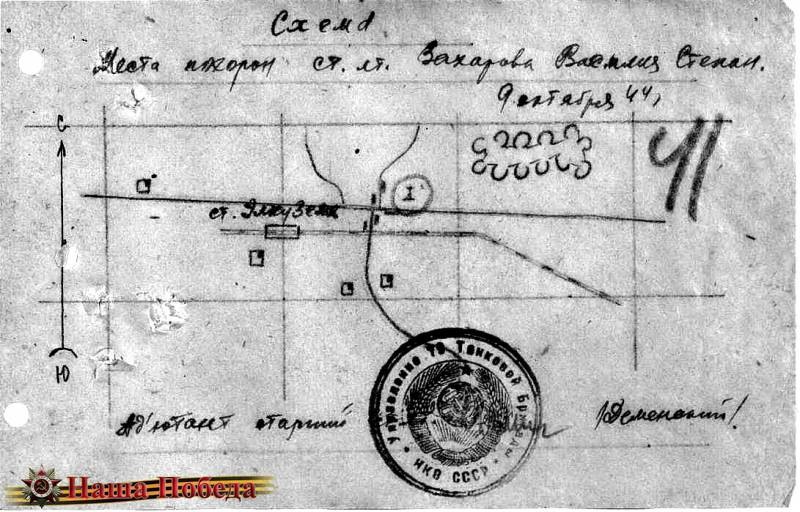 Схема
Места похорон ст. лт. Захарова Василия Степан.
9 октября 44,
С
I
ст.
Ю
Управление 79 Танковой Бригады
НКО СССР
Адъютант старший
/Деменский/
Наша Победа